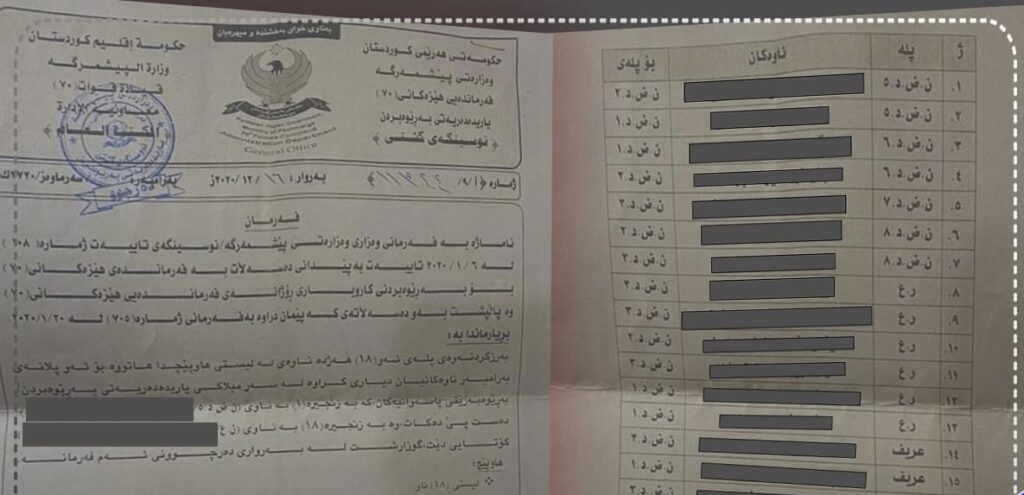 بەناوی خوای بەخشندە و میهرەبان
حكومة إقليم كوردستان
وزارة البيشمرگة
قيادة قوات (٧٠)
حکومەتی هەرێمی کوردستان
وەزارەتی پێشمەرگە
فەرماندەیی هێزەکانی (٧٠)
یاریدەدەریەتی بەڕێوەبردن
﴿ نوسینگەی گشتی ﴾
Administration Department
General Office
ژمارە ﴿ أ /٩/ ١١٣٤٤ ﴾
بەروار : ١٦ / ١٢ /٢٠٢٠ز
فەرمان
ئاماژە بە فەرمانی وەزاری وەزارەتی پێشمەرگە/نوسینگەی تایبەت ژمارە(
لە ٢٠٢٠/١/٦ تایبەت بە پێدانی دەسەڵات بە فەرماندەی هێزەکانی(٧٠)
بۆ بەڕێوەبردنی کاروباری ڕۆژانەی فەرماندەیی هێزەکانی(٧٠)
وە پاڵپشت بەو دەسەڵاتەی کە پێمان دراوە بەفەرمانی ژمارە(٧٠٥) لە ٢٠٢٠/١/٢٠
بڕیارماندا بە :
بەرزکردنەوەی پلەی ئەو (١٨) هەژدە ناوەی لە لیستی هاوپێچدا هاتووە،بۆ ئەو پلانەی
بەرامبەر ناوەکانیان دیاری کراوە لە سەر میلاکی یاریدەدەریەتی بەڕێوەبردن
بەڕێوەبەرێتی پاسەوانیەکان،کە بە زنجیرە(١) بە ناوی (ن.ض.د٥/
دەست پێ دەکات،وە بە زنجیرە(١٨) بە ناوی (ن.ع/
کۆتایی دێت،گوزارشت لە بەرواری دەرچوونی ئەم فەرمانە
هاوپێچ:
لیستی (١٨) ناو
ژ پلە ناوەکان بۆ پلەی
١. ن.ض.د.٥ ن.ض.د.٢
٢. ن.ض.د.٥ ن.ض.د.١
٣. ن.ض.د.٦ ن.ض.د.١
٤. ن.ض.د.٦ ن.ض.د.٢
٥. ن.ض.د.٧ ن.ض.د.٣
٦. ن.ض.د.٨ ن.ض.د.٢
٧. ن.ض.د.٨ ن.ض.د.٣
٨. ر.ع ن.ض.د.٢
٩. ر.ع ن.ض.د.٣
١٠. ر.ع ن.ض.د.٢
١١. ر.ع ن.ض.د.٣
١٢. ر.ع ن.ض.د.١
١٣. ر.ع ن.ض.د.١
١٤. عریف ن.ض.د.٣
١٥. عریف ن.ض.د.١